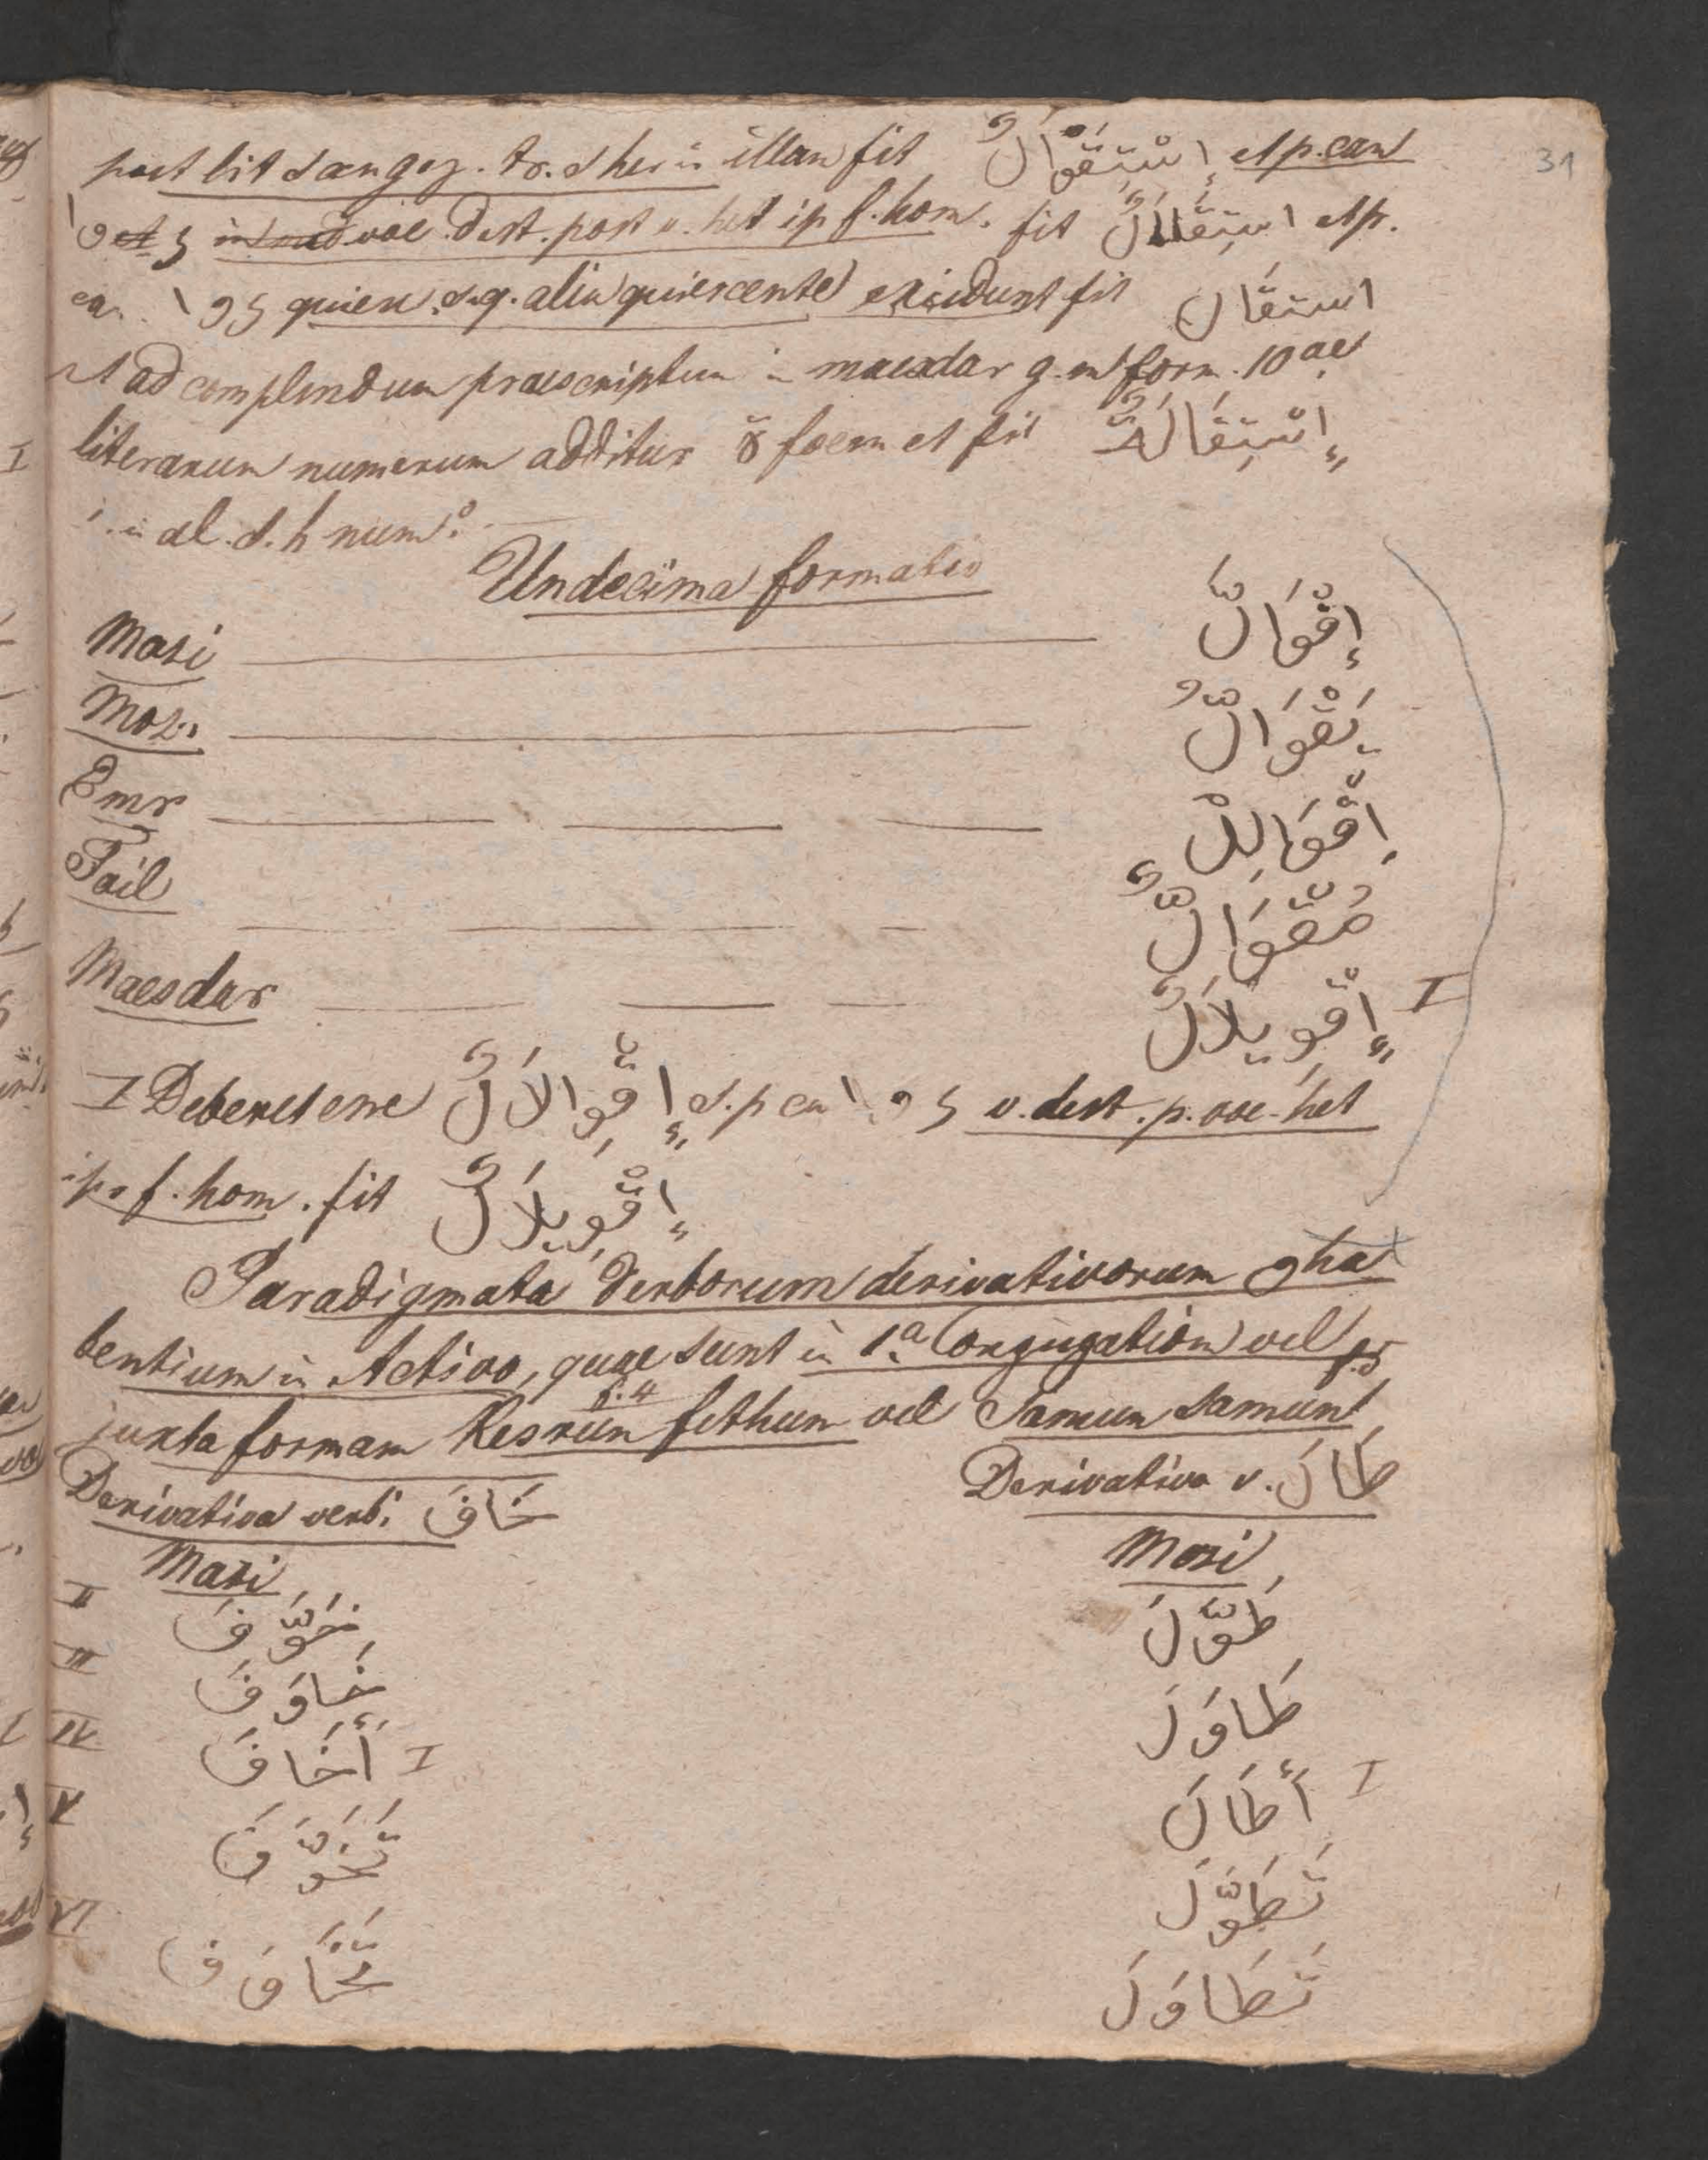 31
post lit s. tr. s illam fit إِسْتِقْوَالٌ et p. can
ا و et ی voc. dest. post v. het ip f. hom. fit اسْتِقَاالٌ et p.
can. ا و ی quiesc. s. q. alia quiescente exidunt fit استقَال
ad complendum praescriptum in maesdar g. form. 10ae
literarum numerum additur ة foem et fit إِسْتِقَالَةٌ
al. s. h num.
Undecima formatio
Mazi إِقْوَالَّ
Moz. يَقْوَالُّ
Emr اِقْوَالِلْ
Fail مُقْوَالٌّ
Maesdar إِقْوِيلَالٌ I
I Deberet esse إِقْوِالَالٌ s. p can ا و ی v. dest. p. voc. het
ip. f. hom. fit إِقْوِيلَالٌ
Paradigmata Verborum derivativorum و ha
bentium in Activo, quae sunt in 1a Conjugation vel
f. 4
juxta formam Kesrun fethun vel Samun samunt
Derivativa verbi خَافَ
Derivativa v. طَالَ
Mazi
Mazi
II خَوَّفَ طَوَّلَ
III خَاوَفَ طَاوَلَ
IV أَخَافَ I أَطَالَ I
V تَخَوَّفَ تَطَوَّلَ
VI تَخَاوَفَ تَطَاوَلَ